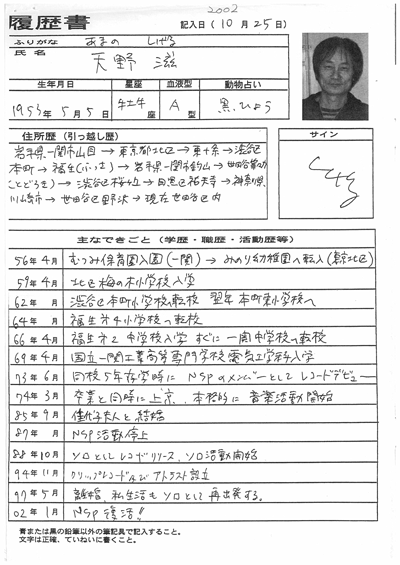 2002
履歴書
記入日(10月25日)
ふりがな あまの しげる
氏名 天野 滋
生年月日 星座 血液型 動物占い
1953年5月5日 牡牛座 A型 黒ひょう
住所歴(引っ越し歴)
サイン
岩手県一関市山目→東京都北区→東十条→渋谷区
本町→福生(ふっさ)→岩手県一関市釣山→世田谷
→渋谷区桜丘→目黒区祐天寺→神奈川県
川崎市→世田谷区野沢→現在世田谷区内
主なできごと(学歴・職歴・活動歴等)
56年4月 むつみ保育園入園(一関)→みのり幼稚園へ転入(東京北区)
59年4月 北区梅の木小学校入学
62年 月 渋谷区本町小学校へ転校 翌年本町東小学校へ
64年 月 福生第4小学校へ転校
66年4月 福生第2中学校入学 すぐに一関中学校へ転校
69年4月 国立一関工業高等専門学校電気工学科入学
73年6月 同校5年在学時にNSPのメンバーとしてレコードデビュー
74年3月 卒業と同時に上京、本格的に音楽活動開始
85年9月 夫人と結婚
87年 月 NSP活動停止
88年10月 ソロとしてレコードリリース、ソロ活動開始
94年11月 クリップレコード及びアトラスト設立
97年5月 離婚、私生活もソロとして再出発する。
02年1月 NSP復活!!
青または黒の鉛筆以外の筆記具で記入すること。
文字は正確、ていねいに書くこと。